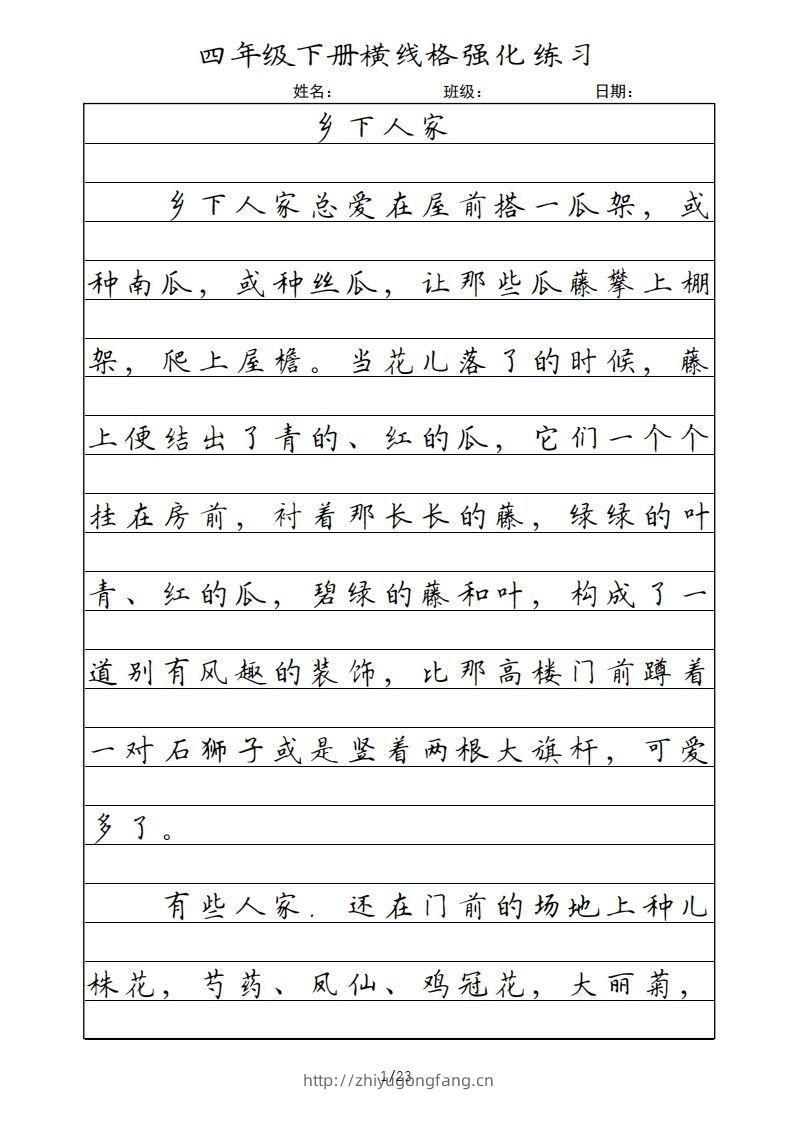 四年级下册横线格强化练习
姓名： 班级： 日期：
乡下人家
乡下人家总爱在屋前搭一瓜架，或
种南瓜，或种丝瓜，让那些瓜藤攀上棚
架，爬上屋檐。当花儿落了的时候，藤
上便结出了青的、红的瓜，它们一个个
挂在房前，衬着那长长的藤，绿绿的叶
青、红的瓜，碧绿的藤和叶，构成了一
道别有风趣的装饰，比那高楼门前蹲着
一对石狮子或是竖着两根大旗杆，可爱
多了。
有些人家．还在门前的场地上种儿
株花，芍药、凤仙、鸡冠花，大丽菊，
1/23
http://zhiyugongfang.cn